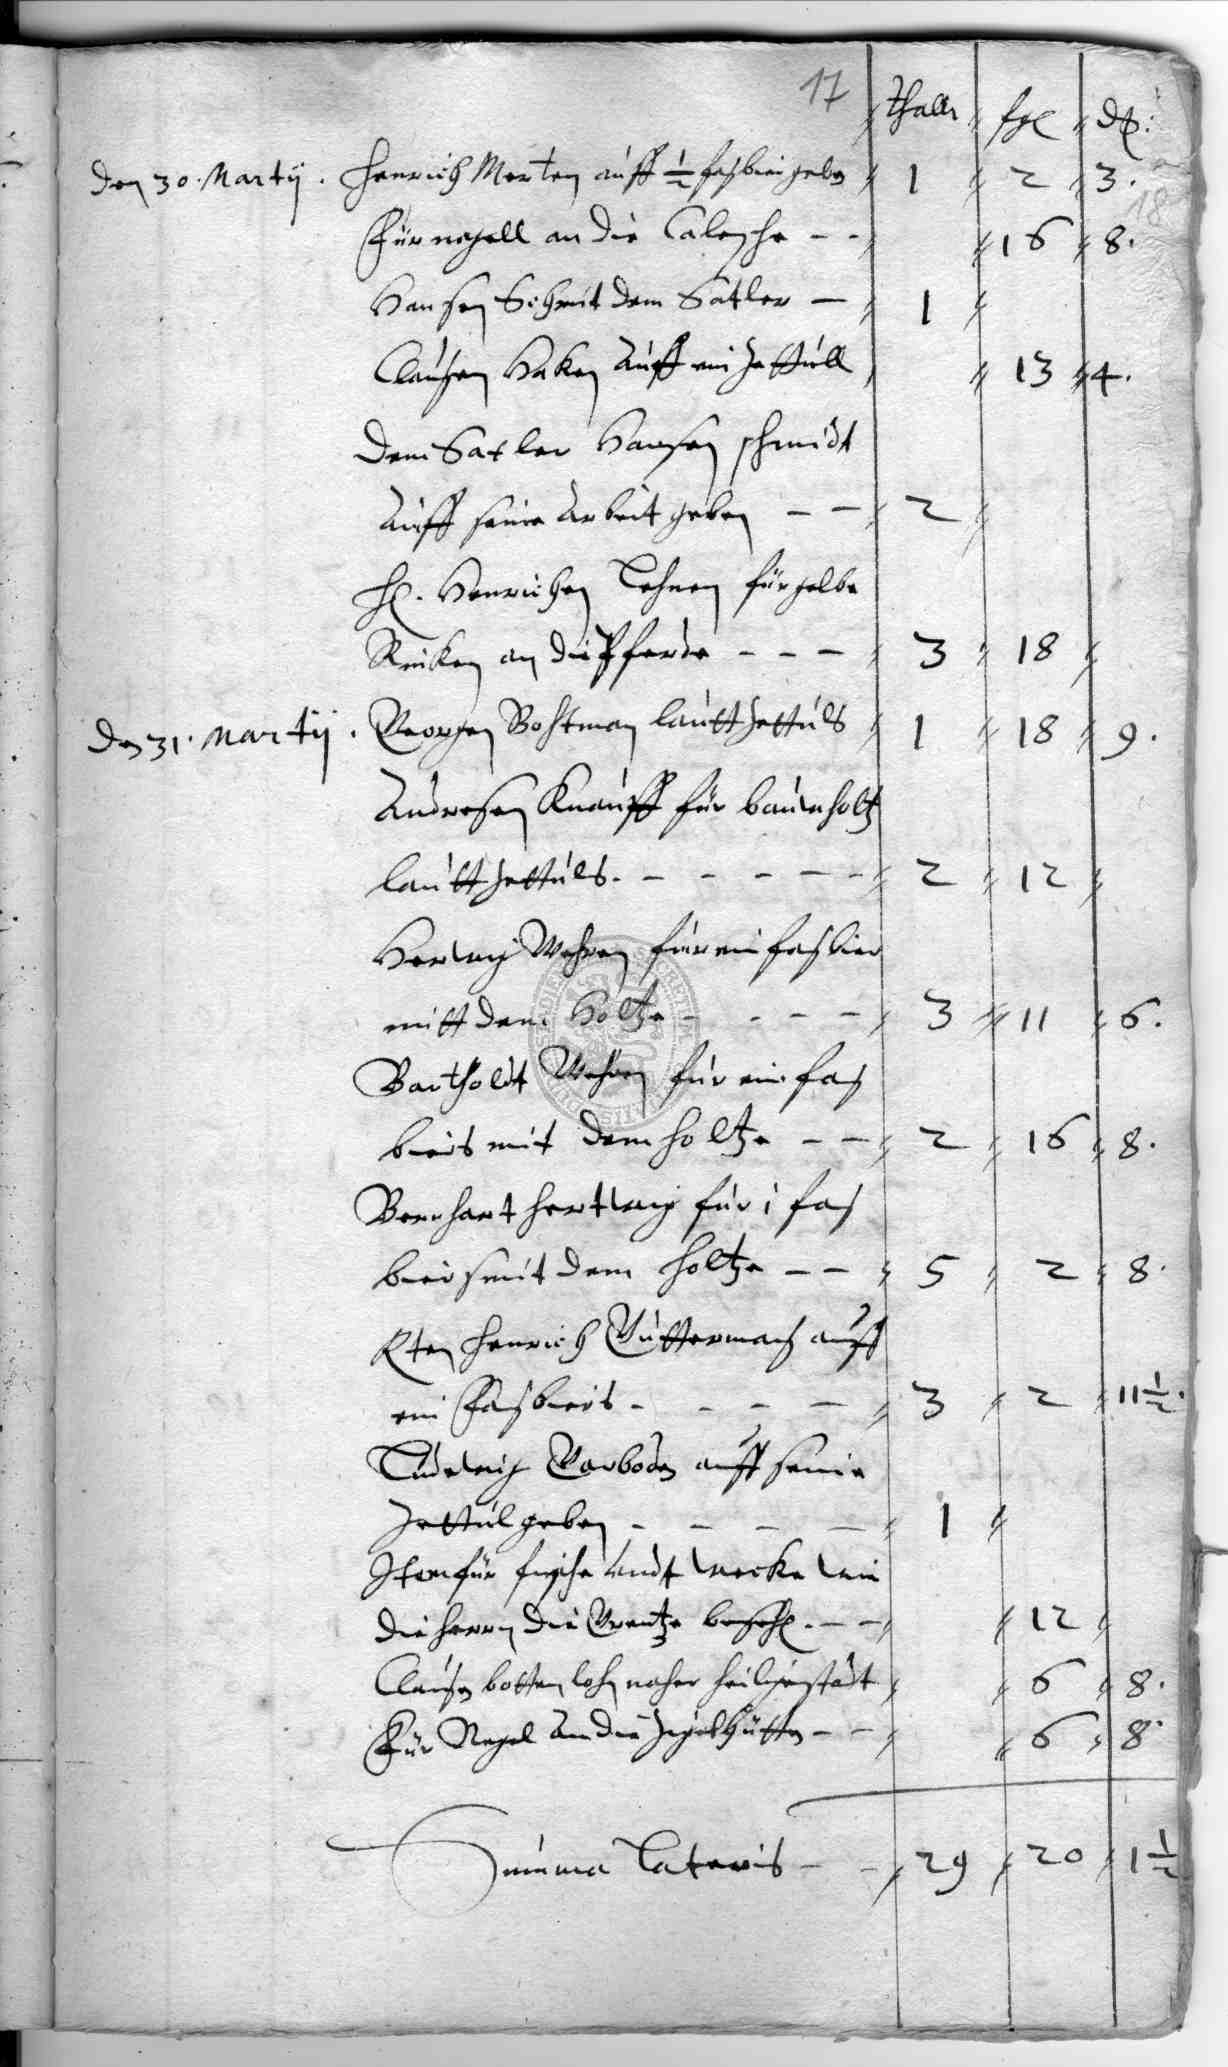 17
thallr sgl d₰:
18
den 30. Martij. Henrich Merten auff ½ fasbier geben 1 2 3.
Für nagell an die Calesche - - 16 8.
Hansen Schmit dem Satler - 1
Clausen Haken auff ein zettull 13 4.
Dem Satler Hansen schmidt
Auff seine Arbeit geben - - 2
H. Henrichen Lehnen für gelbe
Rinken an die Pferde - - - 3 18
den 31. Martij. Georgen Bohtman lautt zettuls 1 18 9.
Andresen Knauff für bauwholtz
lautt zettuls. - - - - - 2 12
Herwig Wehren für ein fasbier
mitt dem Holtze - - - - 3 11 6.
Bartholdt Wehren für ein fas
biers mit dem holtze - - 2 16 8.
Bernhart hertwig für 1 fas
biers mit dem holtze - - 5 2 8.
Henrich auff
ein Fasbiers - - - - 3 2 11½.
Ludewig auff seine
Zettul geben - - - - 1
Item für fische undt wecke wie
die herrn die Grentze - - 12
Clausen bottenlohn naher heiligenstadt 6 8.
Für Negel an die Zigelhütten - - 6 8
Summa Lateris - - 29 20 1½